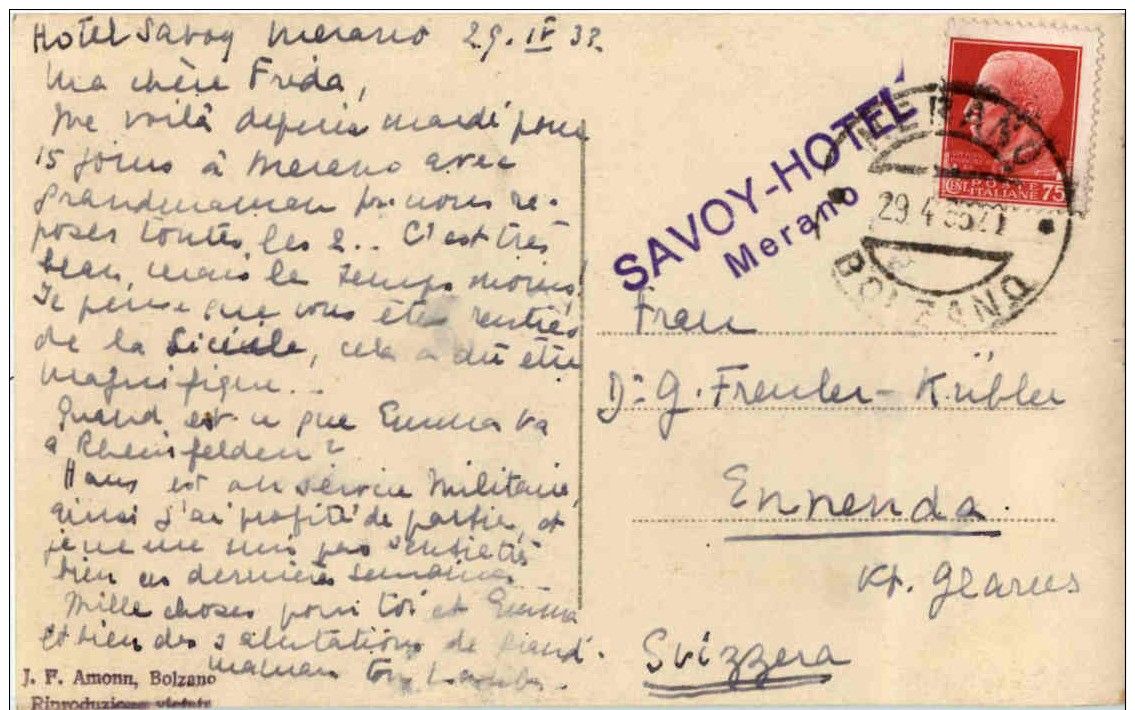 Hotel Savoy Merano 29. IV 33.
Ma chère Frida,
Me voilà depuis mardi pour
15 jours à Merano avec
grandmaman pr. nous re-
poser toutes les 2.. C'est très
beau, mais le temps moins!
Je pense que vous êtes rentrés
de la Sicile, cela a dû être
magnifique...
Quand est ce que Emma va
à Rheinfelden?
Hans est au service militaire,
ainsi j'ai profité de partir, et
je ne me suis pas sentie très
bien ces dernières semaines.
Mille choses pour toi et Emma
et bien des salutations de grand-
maman ton
J. F. Amonn, Bolzano
Riproduzione vietata
SAVOY-HOTEL
Merano
MERANO
29 4
BOLZANO
POSTE
ITALIANE
CENT. 75
Frau
Dr. G. Freuler-Kübler
Ennenda.
Kt. Glarus
Svizzera